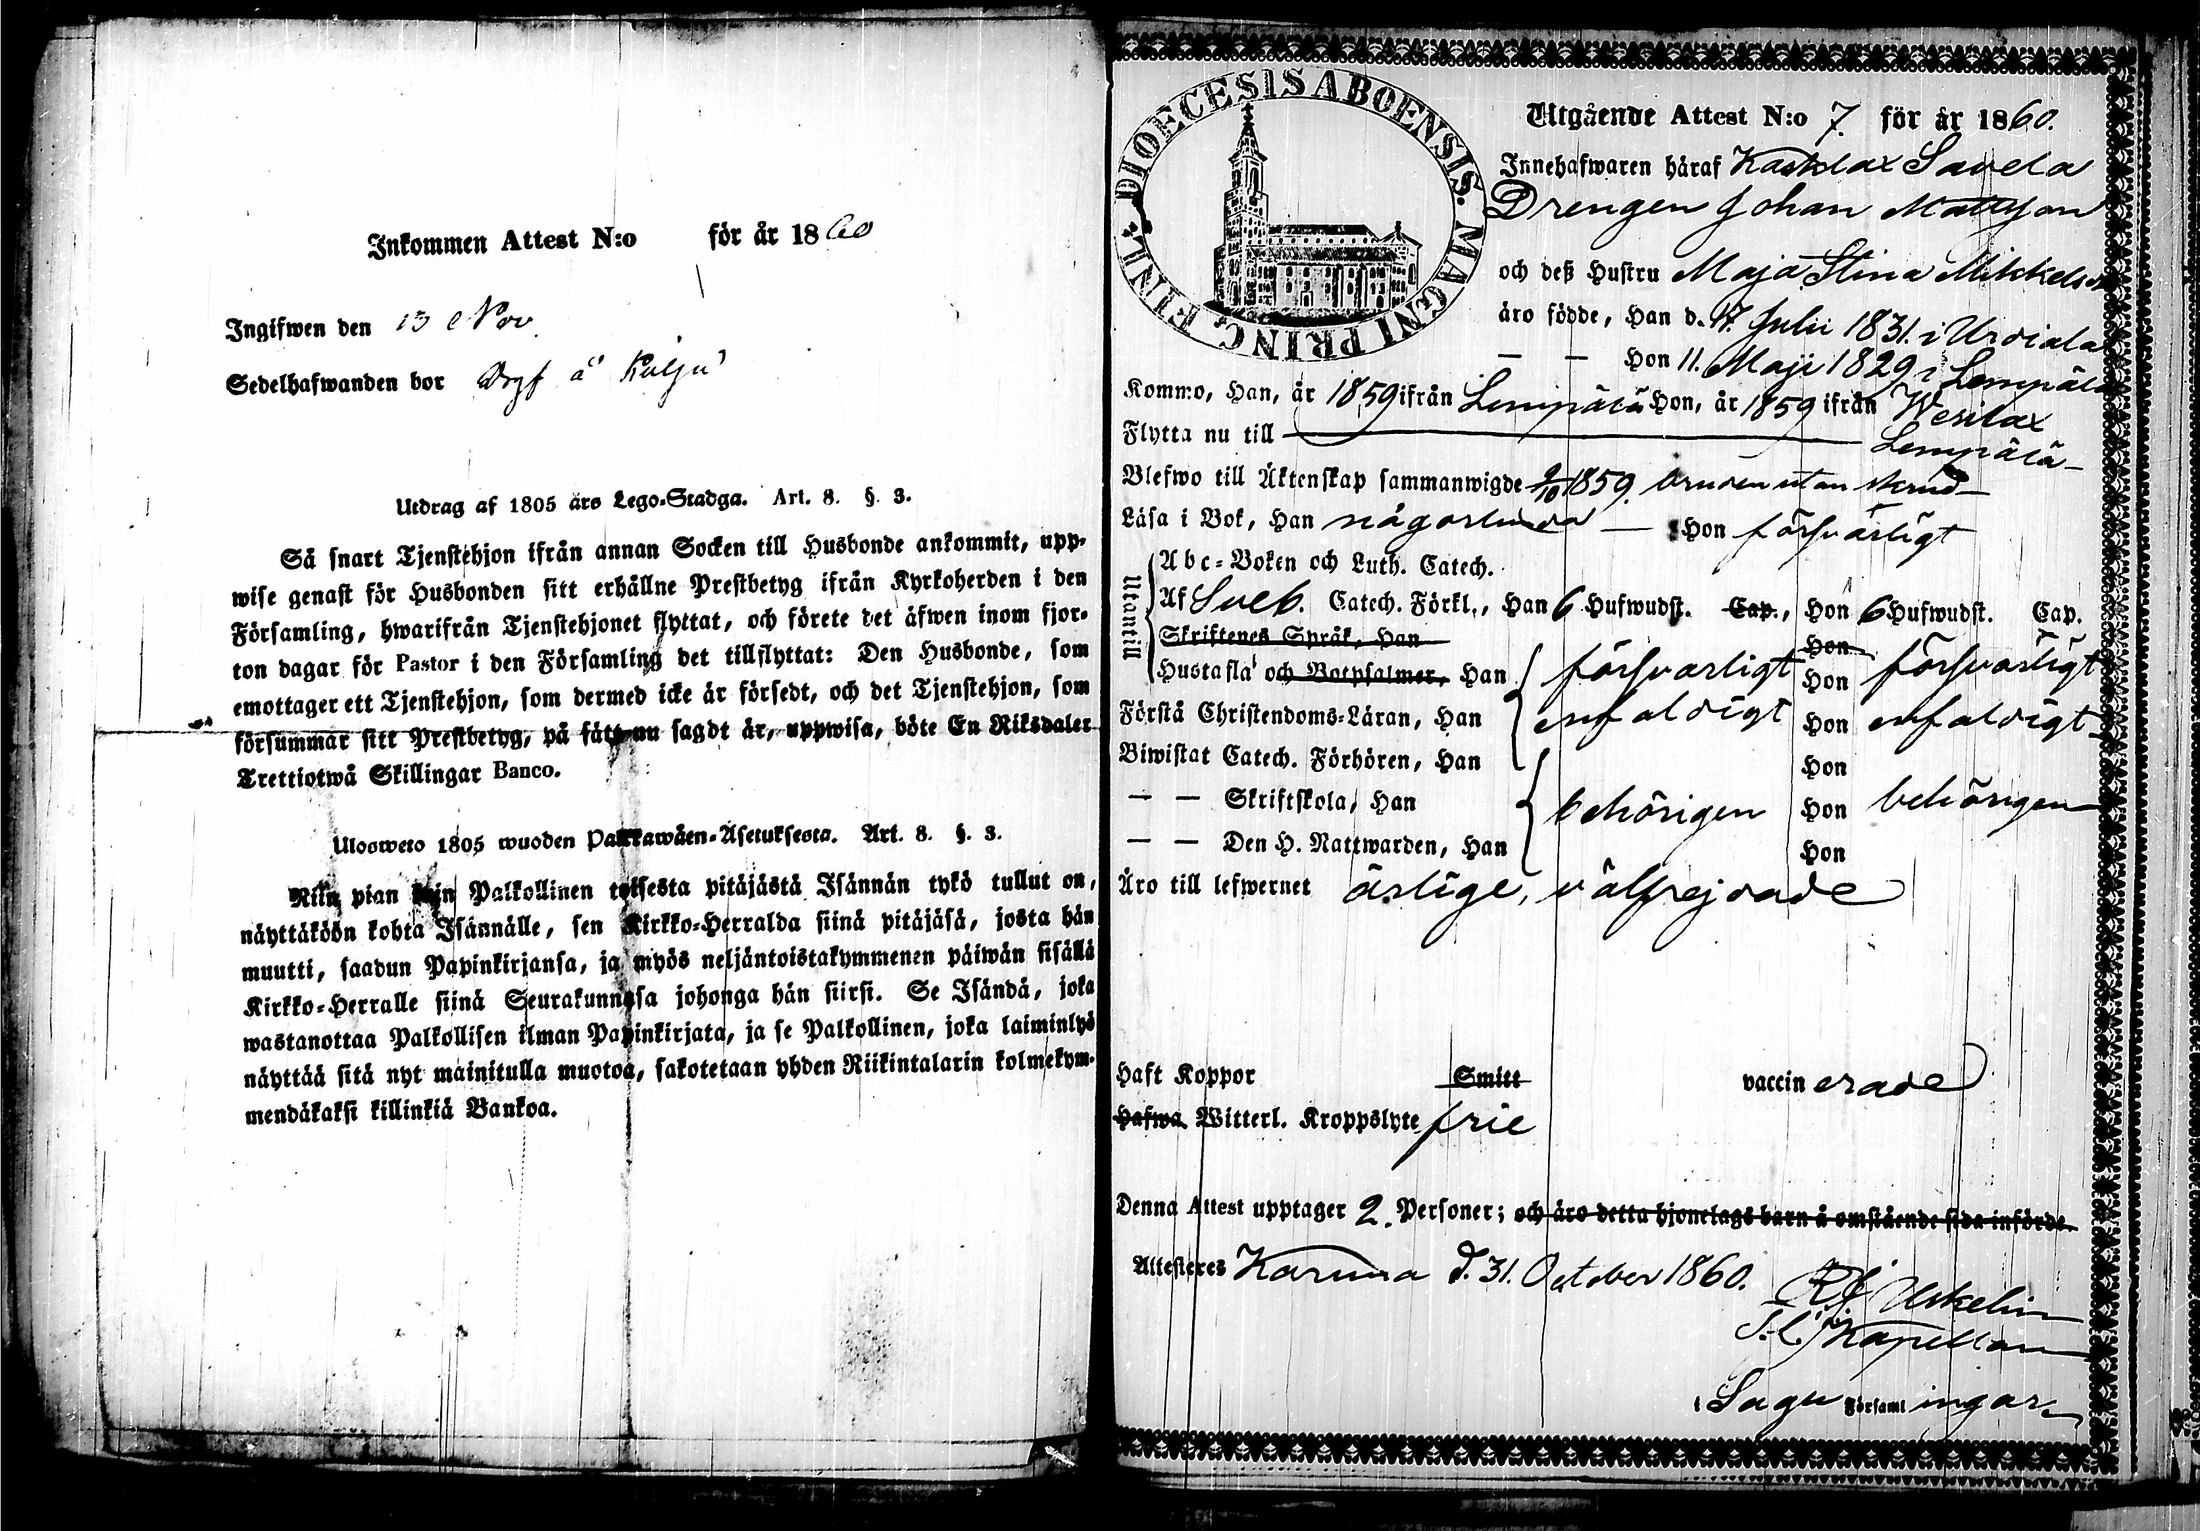 Inkommen Attest N:o för år 1860
Ingifwen den 13 Nov.
Sedelhafwanden bor Drgf å Kulju
Utdrag af 1805 års Lego-Stadga. Art. 8. §. 3.
Så snart Tjenstehjon ifrån annan Socken till Husbonde ankommit, upp-
wise genast för Husbonden sitt erhållne Prestbetyg ifrån Kyrkoherden i den
Församling, hwarifrån Tjenstehjonet flyttat, och förete det äfwen inom fjor-
ton dagar för Pastor i den Församling det tillflyttat: Den Husbonde, som
emottager ett Tjenstehjon, som dermed icke är försedt, och det Tjenstehjon, som
försummar sitt Prestbetyg, på sätt nu sagdt är, uppwisa, böte En Riksdaler
Trettiotwå Skillingar Banco.
Ulosweto 1805 wuoden Palkkawäen-Asetuksesta. Art. 8. §. 3.
Niin pian kuin Palkollinen toisesta pitäjästä Isännän tykö tullut on,
näyttäköön kohta Isännälle, sen Kirkko-Herralda siinä pitäjäsä, josta hän
muutti, saadun Papinkirjansa, ja myös neljäntoistakymmenen päiwän sisällä
Kirkko-Herralle siinä Seurakunnasa johonga hän siirsi. Se Isändä, joka
wastanottaa Palkollisen ilman Papinkirjata, ja se Palkollinen, joka laiminlyö
näyttää sitä nyt mainitulla muotoa, sakotetaan yhden Riikintalarin kolmekym-
mendäkaksi killinkiä Bankoa.
DIOECESIS ABOENSIS. MAGNI PRINC. FINL.
Utgående Attest N:o 7. för år 1860.
Innehafwaren häraf Kasklax Savela
Drengen Johan Mattsson
och deß Hustru Maja Stina Mikkelsdr
äro födde, Han d. 17. Julii 1831. i Urdiala
— — Hon 11. Maji 1829 i Lempälä
Kommo, Han, år 1859 ifrån Lempälä Hon, år 1859 ifrån Wesilax
Flytta nu till — Lempälä
Blefwo till Äktenskap sammanwigde 9/10 1859. bruden utan skrud
Läsa i Bok, Han någorlunda — Hon försvarligt
Utantill
Abc-Boken och Luth. Catech.
Af Sveb. Catech. Förkl., Han 6 Hufwudst. Cap., Hon 6 Hufwudst. Cap.
Skriftenes Språk, Han Hon
Hustafla och Botpsalmer, Han försvarligt Hon försvarligt
Förstå Christendoms-Läran, Han enfaldigt Hon enfaldigt
Biwistat Catech. Förhören, Han Hon
— — Skriftskola, Han behörigen Hon behörigen
— — Den H. Nattwarden, Han Hon
Äro till lefwernet ärlige, välfrejdade
Haft Koppor Smitt vaccinerade
Hafwa Witterl. Kroppslyte frie
Denna Attest upptager 2. Personer; och äro detta hjonelags barn å omstående sida införde.
Attesteres Karuna d. 31. October 1860.
Uskelin
Kapellan
i Sagu Församlingar